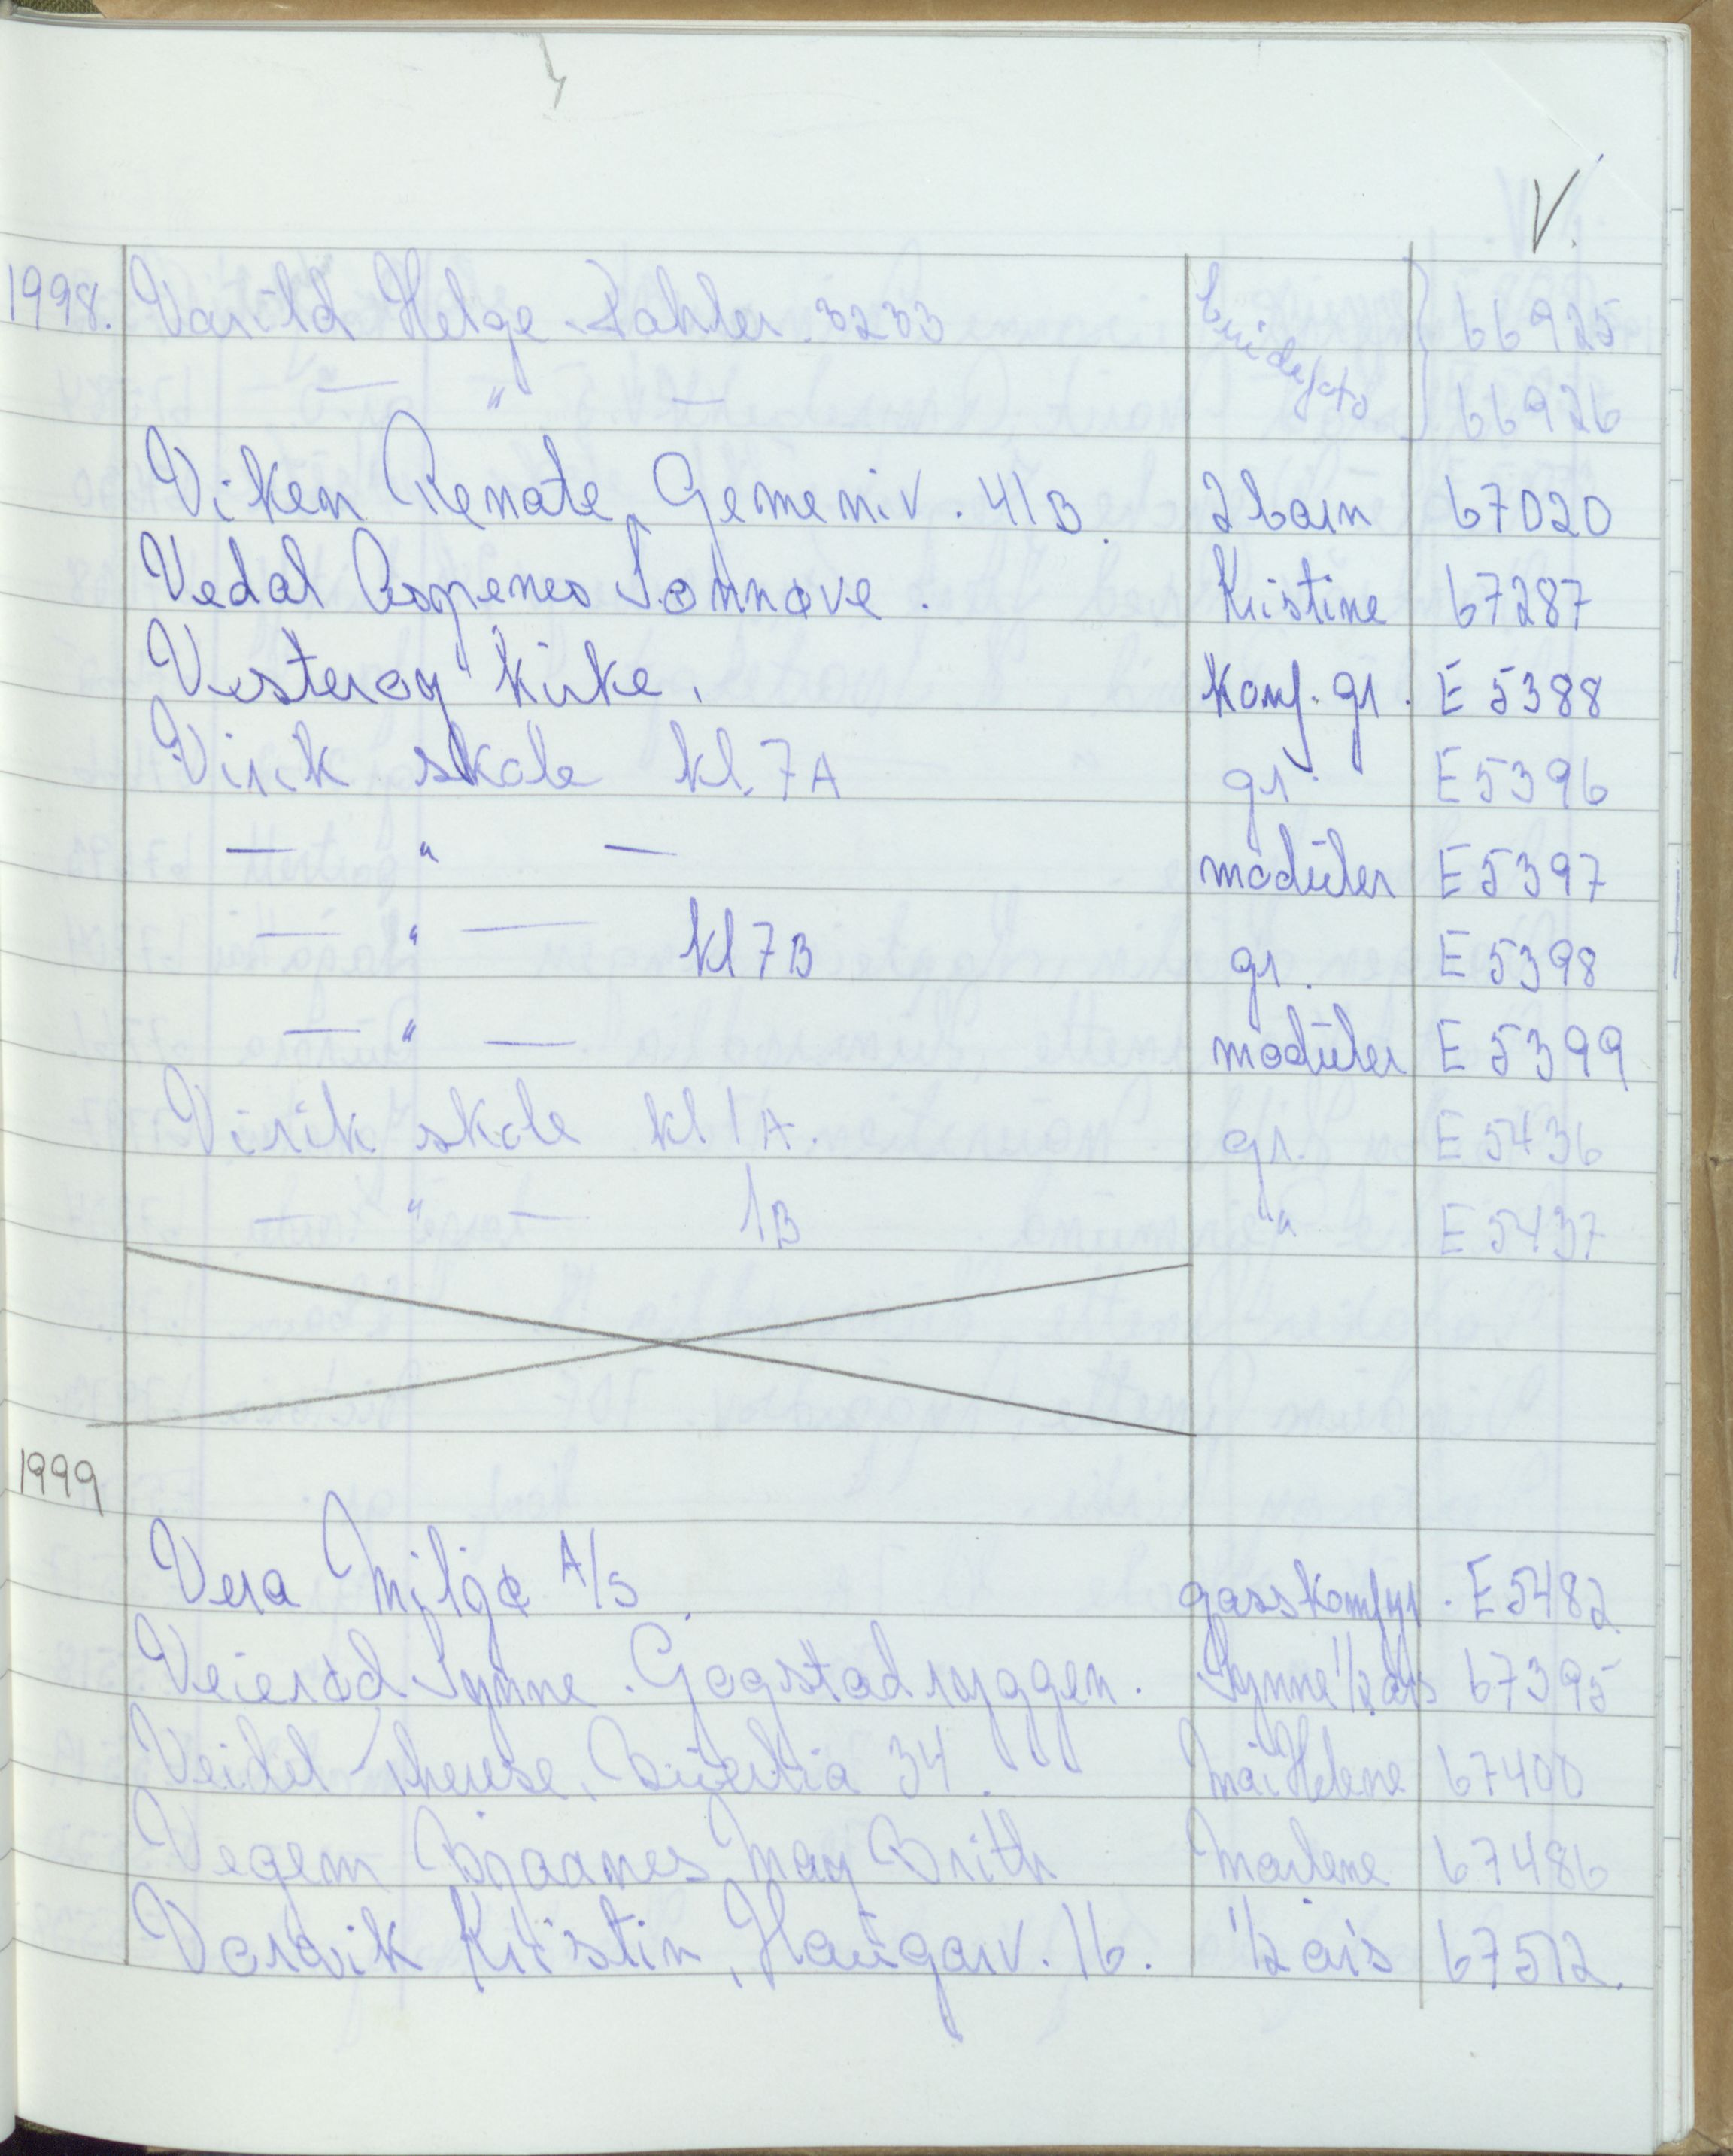 V.
1998. Varild Helge. Dahler. 3233 brudefoto 66925
— " — 66926
Viken Renate, Gemeniv. 41B. 2 barn 67020
Vedal Aspenes Sonnøve. Kristine 67287
Vesterøy kirke. Konf. gr. E 5388
Virik skole kl. 7A gr. E 5396
— " — moduler E 5397
— " — kl 7B gr. E 5398
— " — moduler E 5399
Virik skole kl 1A. gr. E 5436
— " — 1B " E 5437
1999
Vera Miljø A/S. gasskomfyr. E 5482
Veierød Synne. Gogstadryggen. Synne 1/2 års 67395
Veidel Therese, 34. Mai Helene 67400
Vegem Bjaanes May Brith Marlene 67486
Varvik Kristin, Haugarv. 16. 1/2 års 67512.